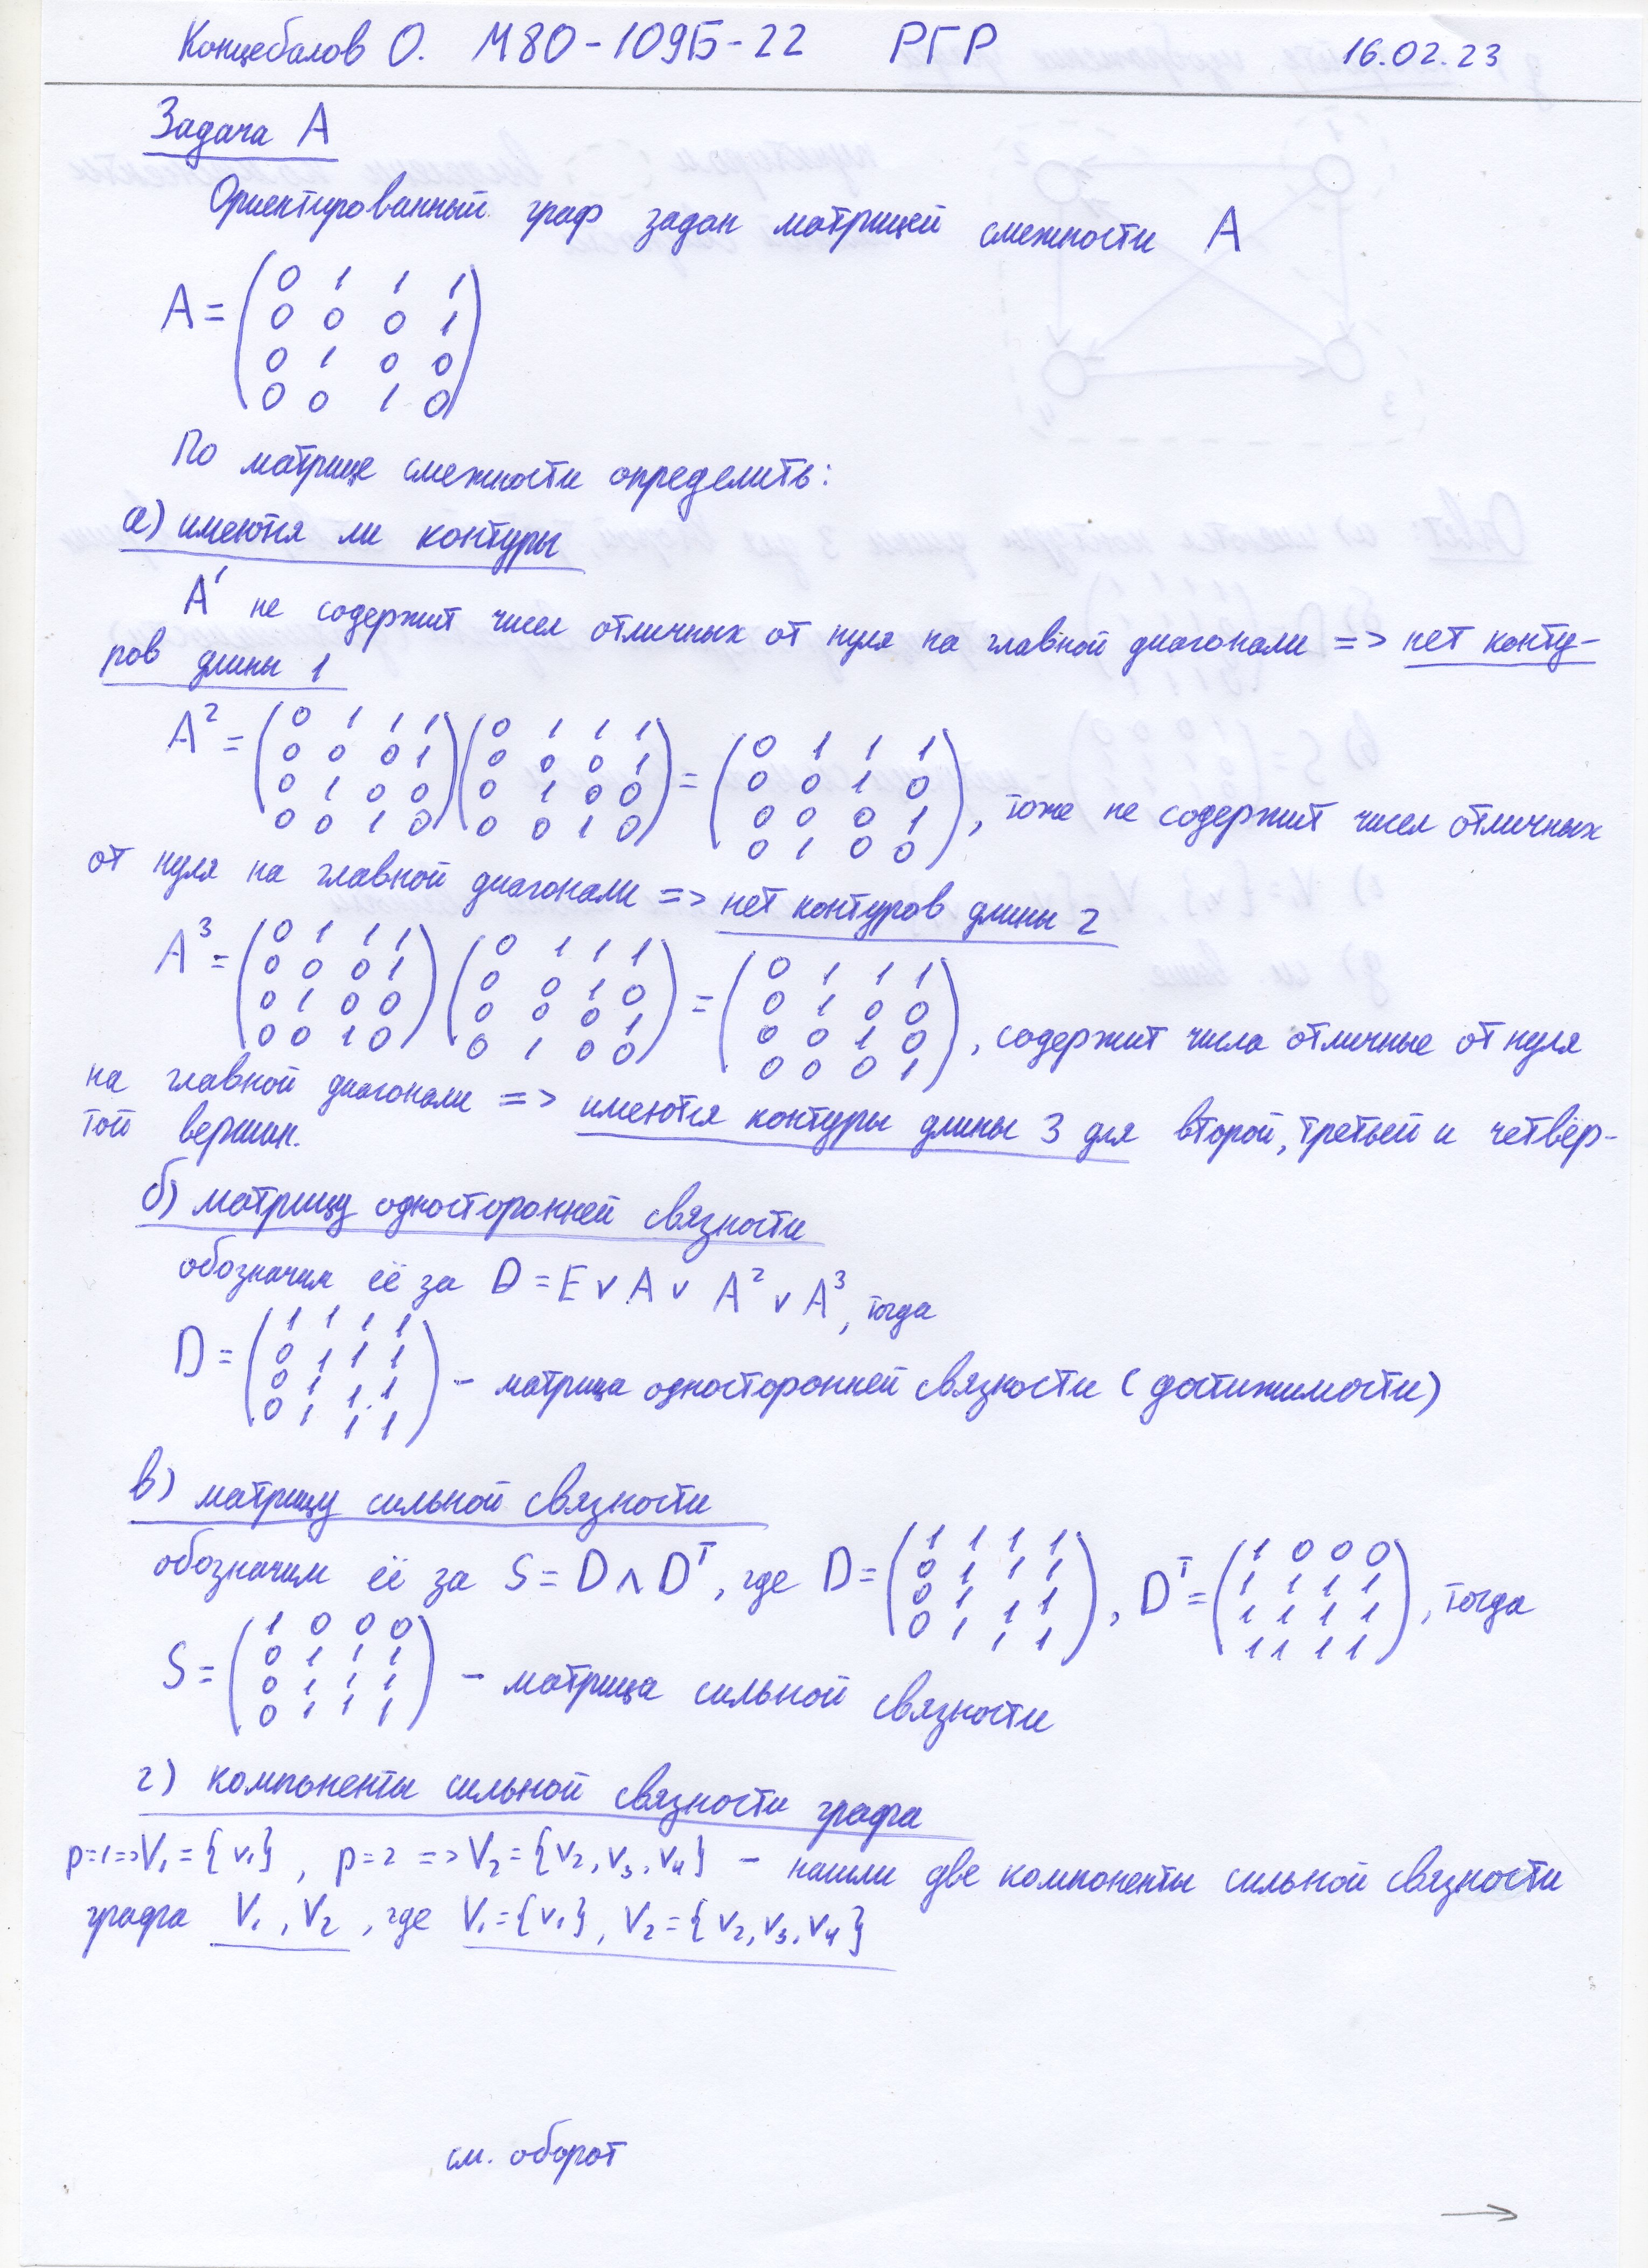 Концебалов О. М80-109Б-22 РГР 16.02.23
Задача А
Ориентированный граф задан матрицей смежности А
A = (0 1 1 1
0 0 0 1
0 1 0 0
0 0 1 0)
По матрице смежности определить:
а) имеются ли контуры
A¹ не содержит чисел отличных от нуля на главной диагонали => нет конту-
ров длины 1
A² = (0 1 1 1 (0 1 1 1 (0 1 1 1
0 0 0 1 0 0 0 1 0 0 1 0
0 1 0 0 0 1 0 0 = 0 0 0 1
0 0 1 0) 0 0 1 0) 0 1 0 0), тоже не содержит чисел отличных
от нуля на главной диагонали => нет контуров длины 2
A³ = (0 1 1 1 (0 1 1 1 (0 1 1 1
0 0 0 1 0 0 1 0 0 1 0 0
0 1 0 0 0 0 0 1 = 0 0 1 0
0 0 1 0) 0 1 0 0) 0 0 0 1), содержит числа отличные от нуля
на главной диагонали => имеются контуры длины 3 для второй, третьей и четвёр-
той вершин.
б) матрицу односторонней связности
обозначим её за D = E ∨ A ∨ A² ∨ A³, тогда
D = (1 1 1 1
0 1 1 1
0 1 1 1
0 1 1 1) – матрица односторонней связности (достижимости)
в) матрицу сильной связности
обозначим её за S = D ∧ Dᵀ, где D = (1 1 1 1
0 1 1 1
0 1 1 1
0 1 1 1), Dᵀ = (1 0 0 0
1 1 1 1
1 1 1 1
1 1 1 1), тогда
S = (1 0 0 0
0 1 1 1
0 1 1 1
0 1 1 1) – матрица сильной связности
г) компоненты сильной связности графа
p=1=>V₁={v₁}, p=2 =>V₂={v₂,v₃,v₄} – нашли две компоненты сильной связности
графа V₁, V₂, где V₁={v₁}, V₂={v₂,v₃,v₄}
см. оборот
→